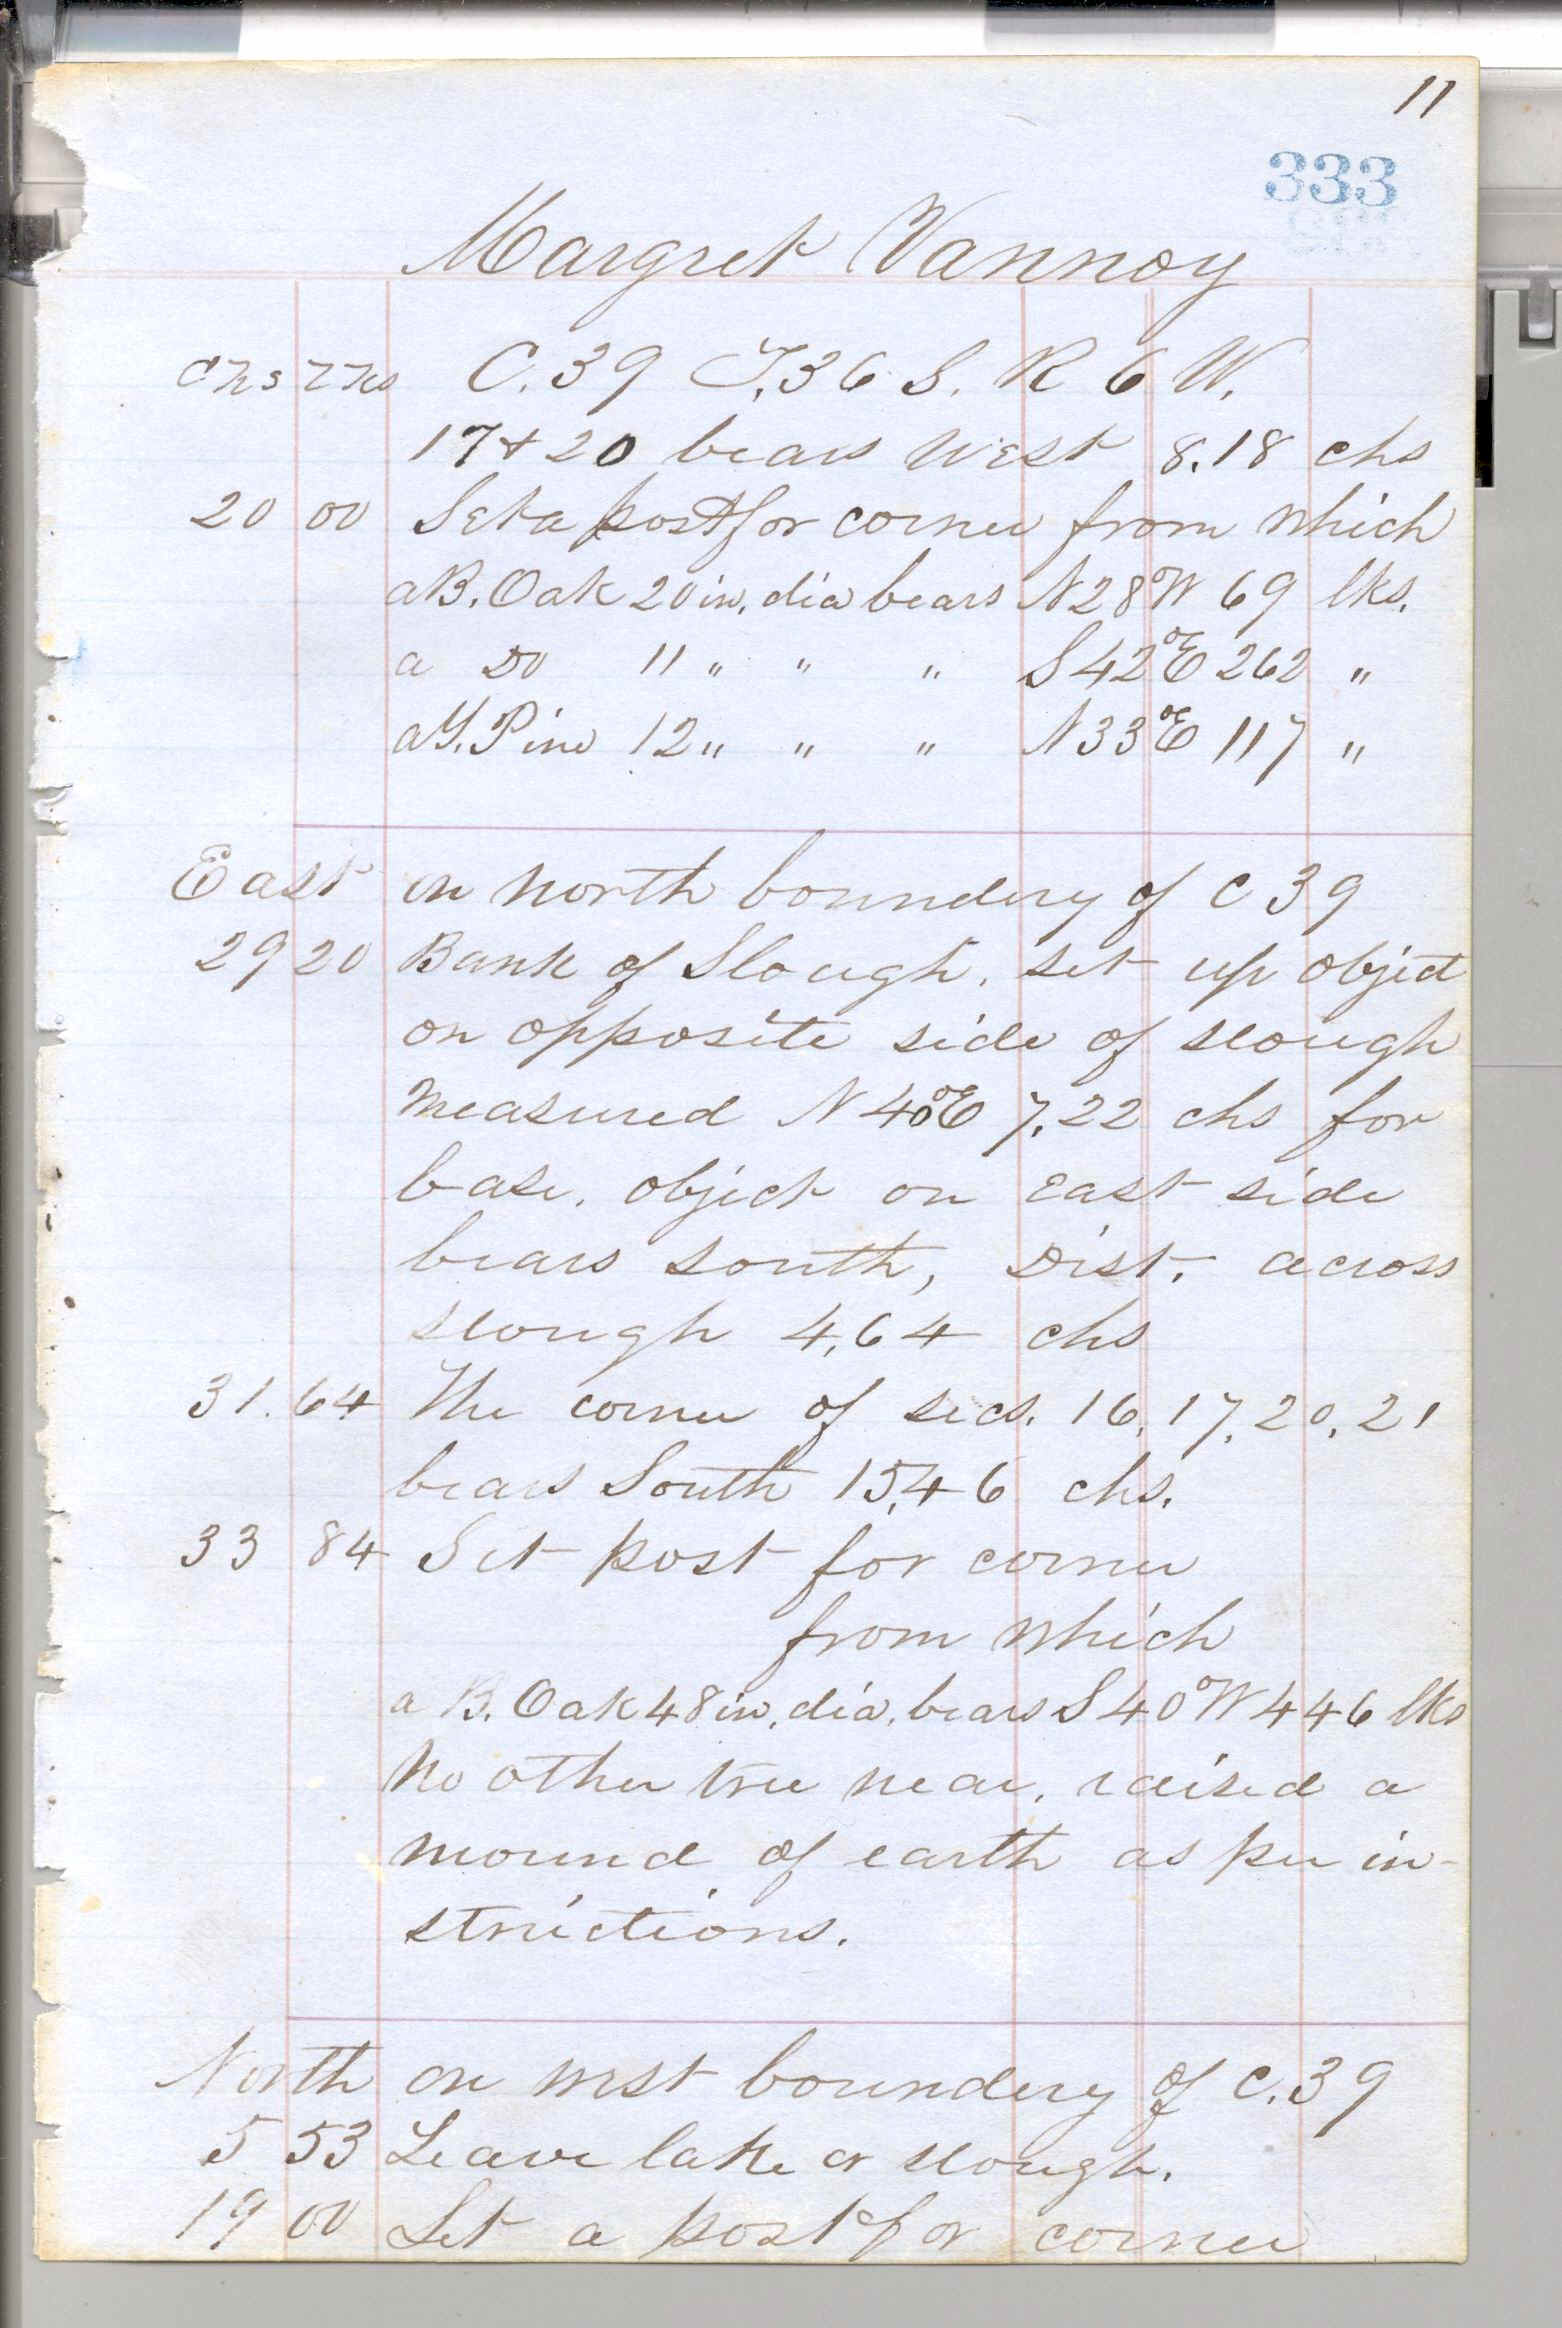 11
333
Margret Vannoy
chs lks C. 39 T. 36 S. R 6 W.
17 + 20 bears West 8.18 chs
20 00 Set a post for corner from which
a B. Oak 20 in. dia bears N 28° W 69 lks.
a Do 11 " " " S 42° E 262 "
a Y. Pine 12 " " " N 33° E 117 "
East on north boundery of C 39
29 20 Bank of Slough. set up object
on opposite side of slough
measured N 40° E 7.22 chs for
base. object on east side
bears south, Dist. across
slough 4.64 chs
31.64 The corner of secs. 16, 17, 20, 21
bears South 15.46 chs.
33 84 Set post for corner
from which
a B. Oak 48 in. dia. bears S 40° W 446 lks
No other tree near. raised a
mound of earth as per in-
strictions.
North on west boundery of C. 39
5 53 Leave lake or slough.
19 00 Set a post for corner